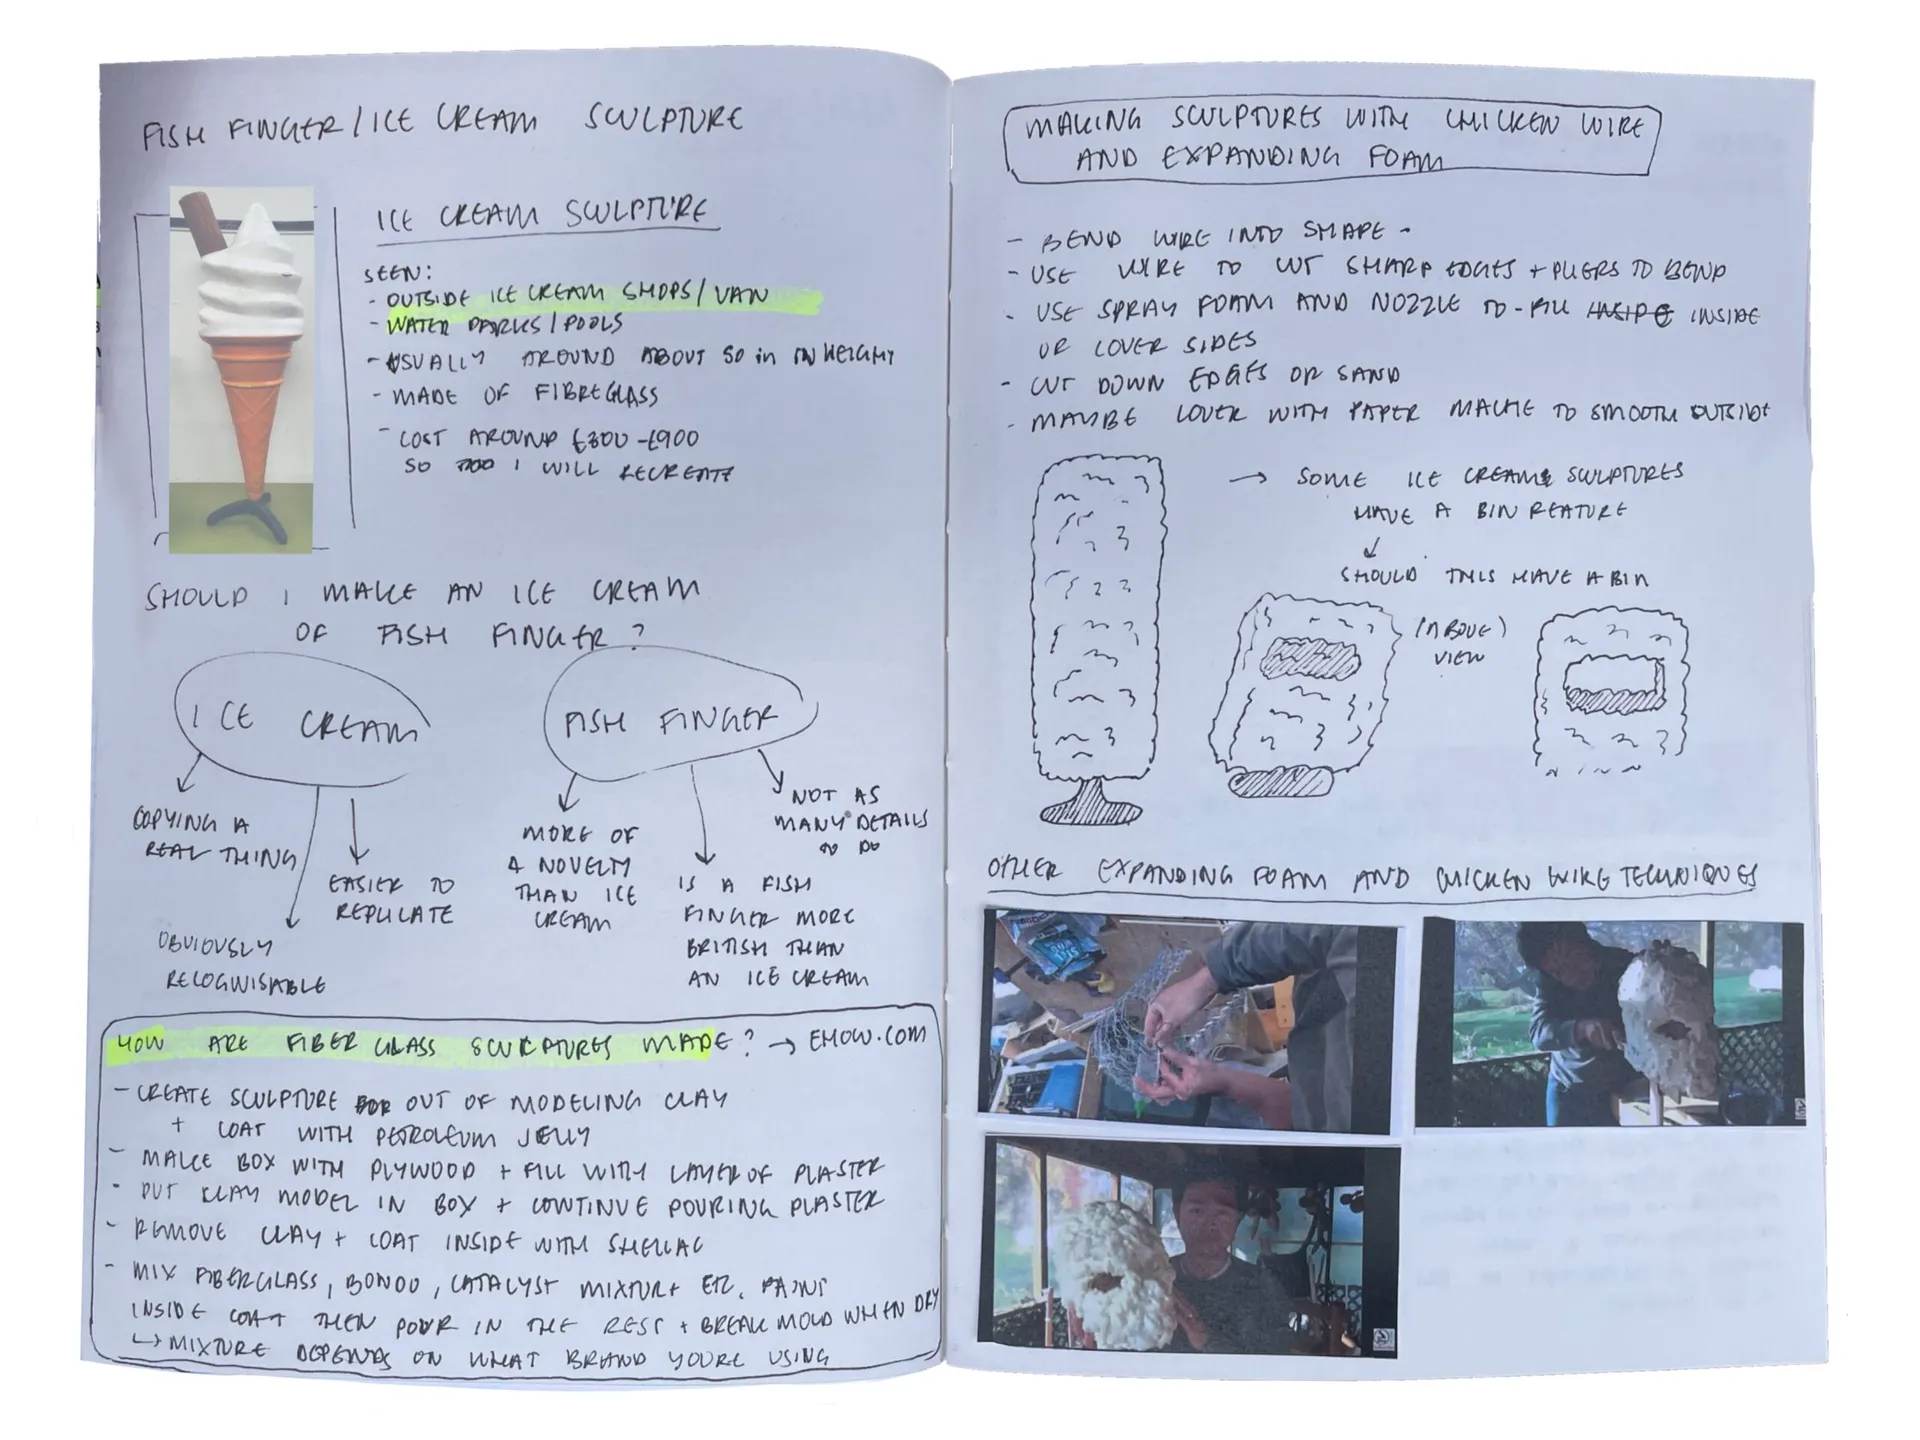 FISH FINGER/ICE CREAM SCULPTURE
ICE CREAM SCULPTURE
SEEN:
- OUTSIDE ICE CREAM SHOPS/VAN
- WATER PARKS/POOLS
- USUALLY AROUND ABOUT 50 in IN HEIGHT
- MADE OF FIBREGLASS
- COST AROUND £300-£900
SO I WILL RECREATE
SHOULD I MAKE AN ICE CREAM
OF FISH FINGER?
ICE CREAM
FISH FINGER
COPYING A
REAL THING
EASIER TO
REPLICATE
OBVIOUSLY
RECOGNISABLE
MORE OF
A NOVELTY
THAN ICE
CREAM
IS A FISH
FINGER MORE
BRITISH THAN
AN ICE CREAM
NOT AS
MANY DETAILS
TO DO
HOW ARE FIBERGLASS SCULPTURES MADE? → EHOW.COM
- CREATE SCULPTURE OUT OF MODELING CLAY
+ COAT WITH PETROLEUM JELLY
- MAKE BOX WITH PLYWOOD + FILL WITH LAYER OF PLASTER
- PUT CLAY MODEL IN BOX + CONTINUE POURING PLASTER
- REMOVE CLAY + COAT INSIDE WITH SHELLAC
- MIX FIBERGLASS, BONDO, CATALYST MIXTURE ETC. PAINT
INSIDE COAT THEN POUR IN THE REST + BREAK MOLD WHEN DRY
↳ MIXTURE DEPENDS ON WHAT BRAND YOURE USING
MAKING SCULPTURES WITH CHICKEN WIRE
AND EXPANDING FOAM
- BEND WIRE INTO SHAPE -
- USE WIRE TO CUT SHARP EDGES + PLIERS TO BEND
- USE SPRAY FOAM AND NOZZLE TO - FILL INSIDE INSIDE
OR COVER SIDES
- CUT DOWN EDGES OR SAND
- MAYBE COVER WITH PAPER MACHE TO SMOOTH OUTSIDE
→ SOME ICE CREAM SCULPTURES
HAVE A BIN FEATURE
↓
SHOULD THIS HAVE A BIN
(ABOVE)
VIEW
OTHER EXPANDING FOAM AND CHICKEN WIRE TECHNIQUES